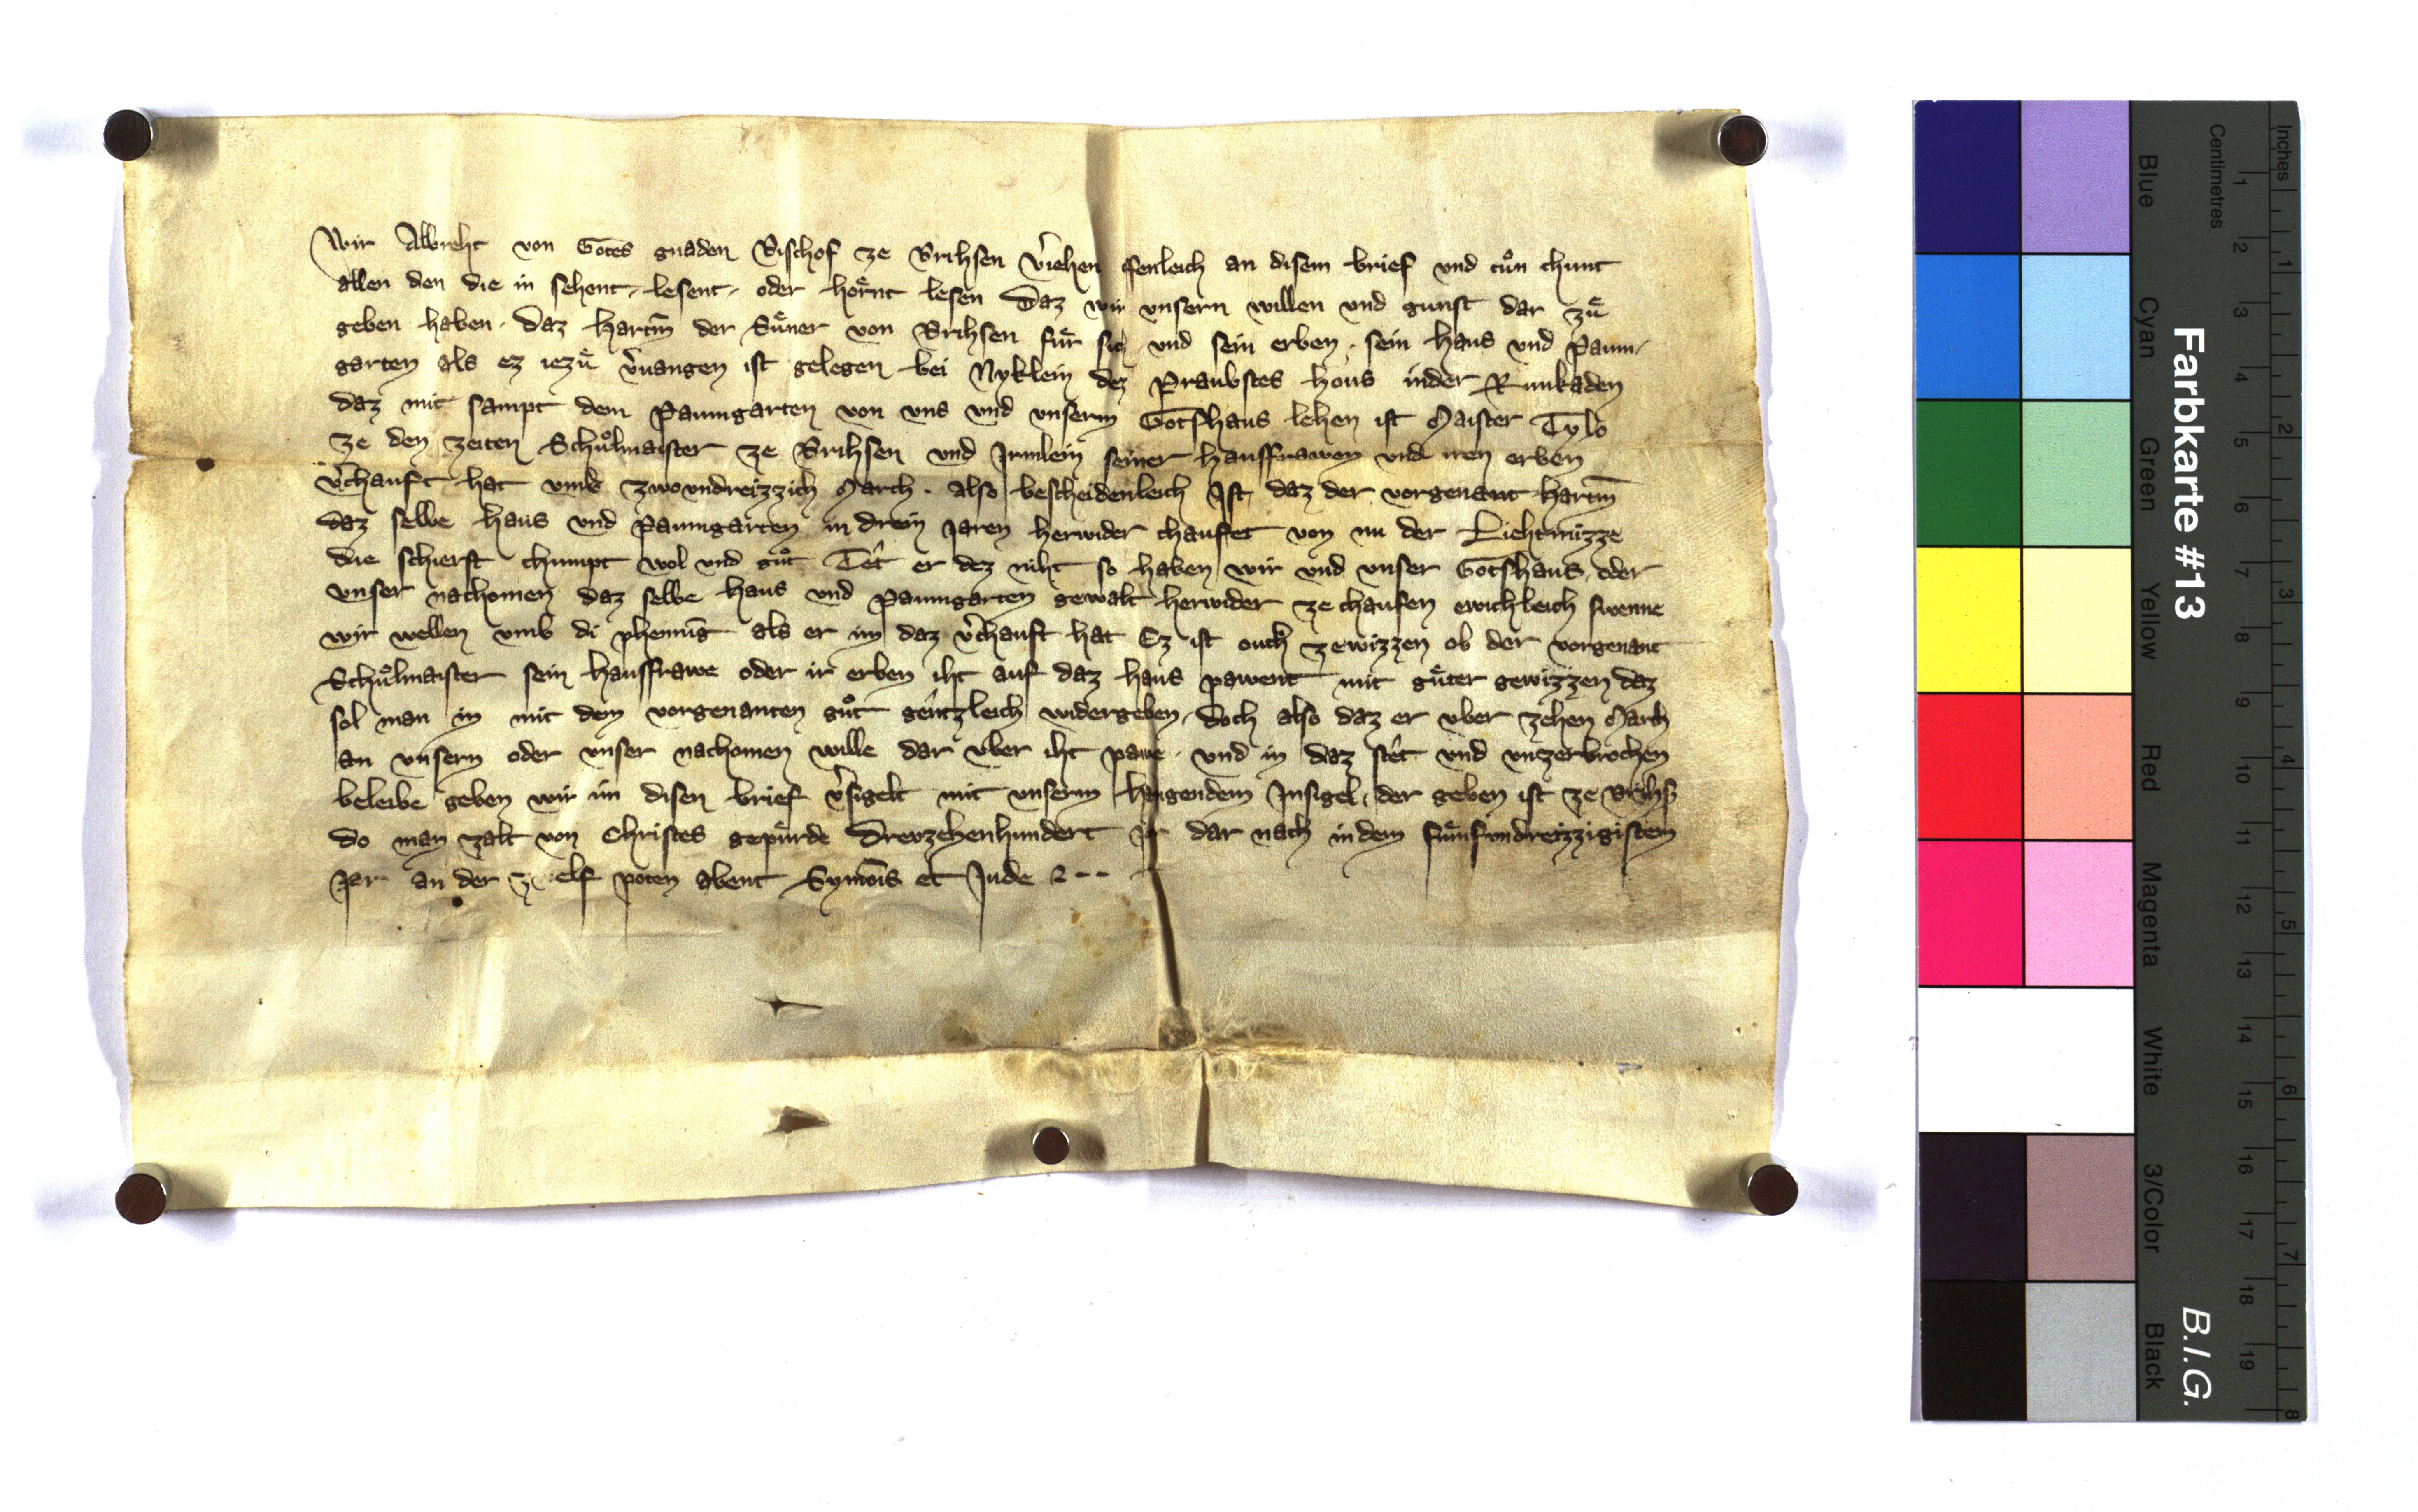 Wir Albreht von Gotes gnaden Bischof ze Brihsen v̾iehen offenleich an disem brief vnd tuͦn chunt
allen den die in sehent, lesent, oder hoͤrnt lesen Daz wir vnsern willen vnd gunst dar zuͤ
geben haben. Daz Hartm̅ der Suͤner von Brihsen fuͤr sich vnd sein erben. sein haus vnd Paum-
garten als ez iezuͤ v̾uangen ist gelegen bei Nyklein dez Praubstes hous inder Runkaden
daz mit sampt dem Paumgarten von vns vnd vnserm Gotshaus lehen ist Maister Tylo
ze den zeiten Schuͦlmaister ze Brihsen vnd Irmlein seiner hausfrawen vnd iren erben
v̾chauft hat vmb zwovndreizzich March. also bescheidenleich Ist, daz der vorgenant Hartm̅
daz selbe haus vnd Paumgarten in drein Jaren herwider chaufet von nu der Liehtmizze
die schierst chumpt wol vnd guͦt Tet er dez niht so haben wir vnd vnser Gotshaus, oder
vnser nachomen daz selbe haus vnd Paumgarten gewalt herwider ze chaufen ewichleich swenne
wir wellen vmb di phennig als er im daz v̾chauft hat Ez ist ouch zewizzen ob der vorgenant
Schuͦlmaister sein hausfrawe oder ir erben iht auf daz haus pawent mit guͤter gewizzen daz
sol man in mit dem vorgenanten guͦt gentzleich widergeben, doch also daz er vber zehen March
an vnsern oder vnser nachomen wille dar vber iht pawe. vnd in daz stet vnd vnzerbrochen
beleibe geben wir im disen brief v̾sigelt mit vnserm hangendem Insigel, der geben ist ze Brihs̅
do man zalt von Christes gepuͤrde Drevzehenhundert Jar dar nach indem fuͤnfvndreizzigistem
Jar an der zwelf poten abent Symo̅is et Jude
Farbkarte #13
B.I.G.
Centimetres
Inches
Blue
Cyan
Green
Yellow
Red
Magenta
White
3/Color
Black
1 2 3 4 5 6 7 8 9 10 11 12 13 14 15 16 17 18 19
1 2 3 4 5 6 7 8